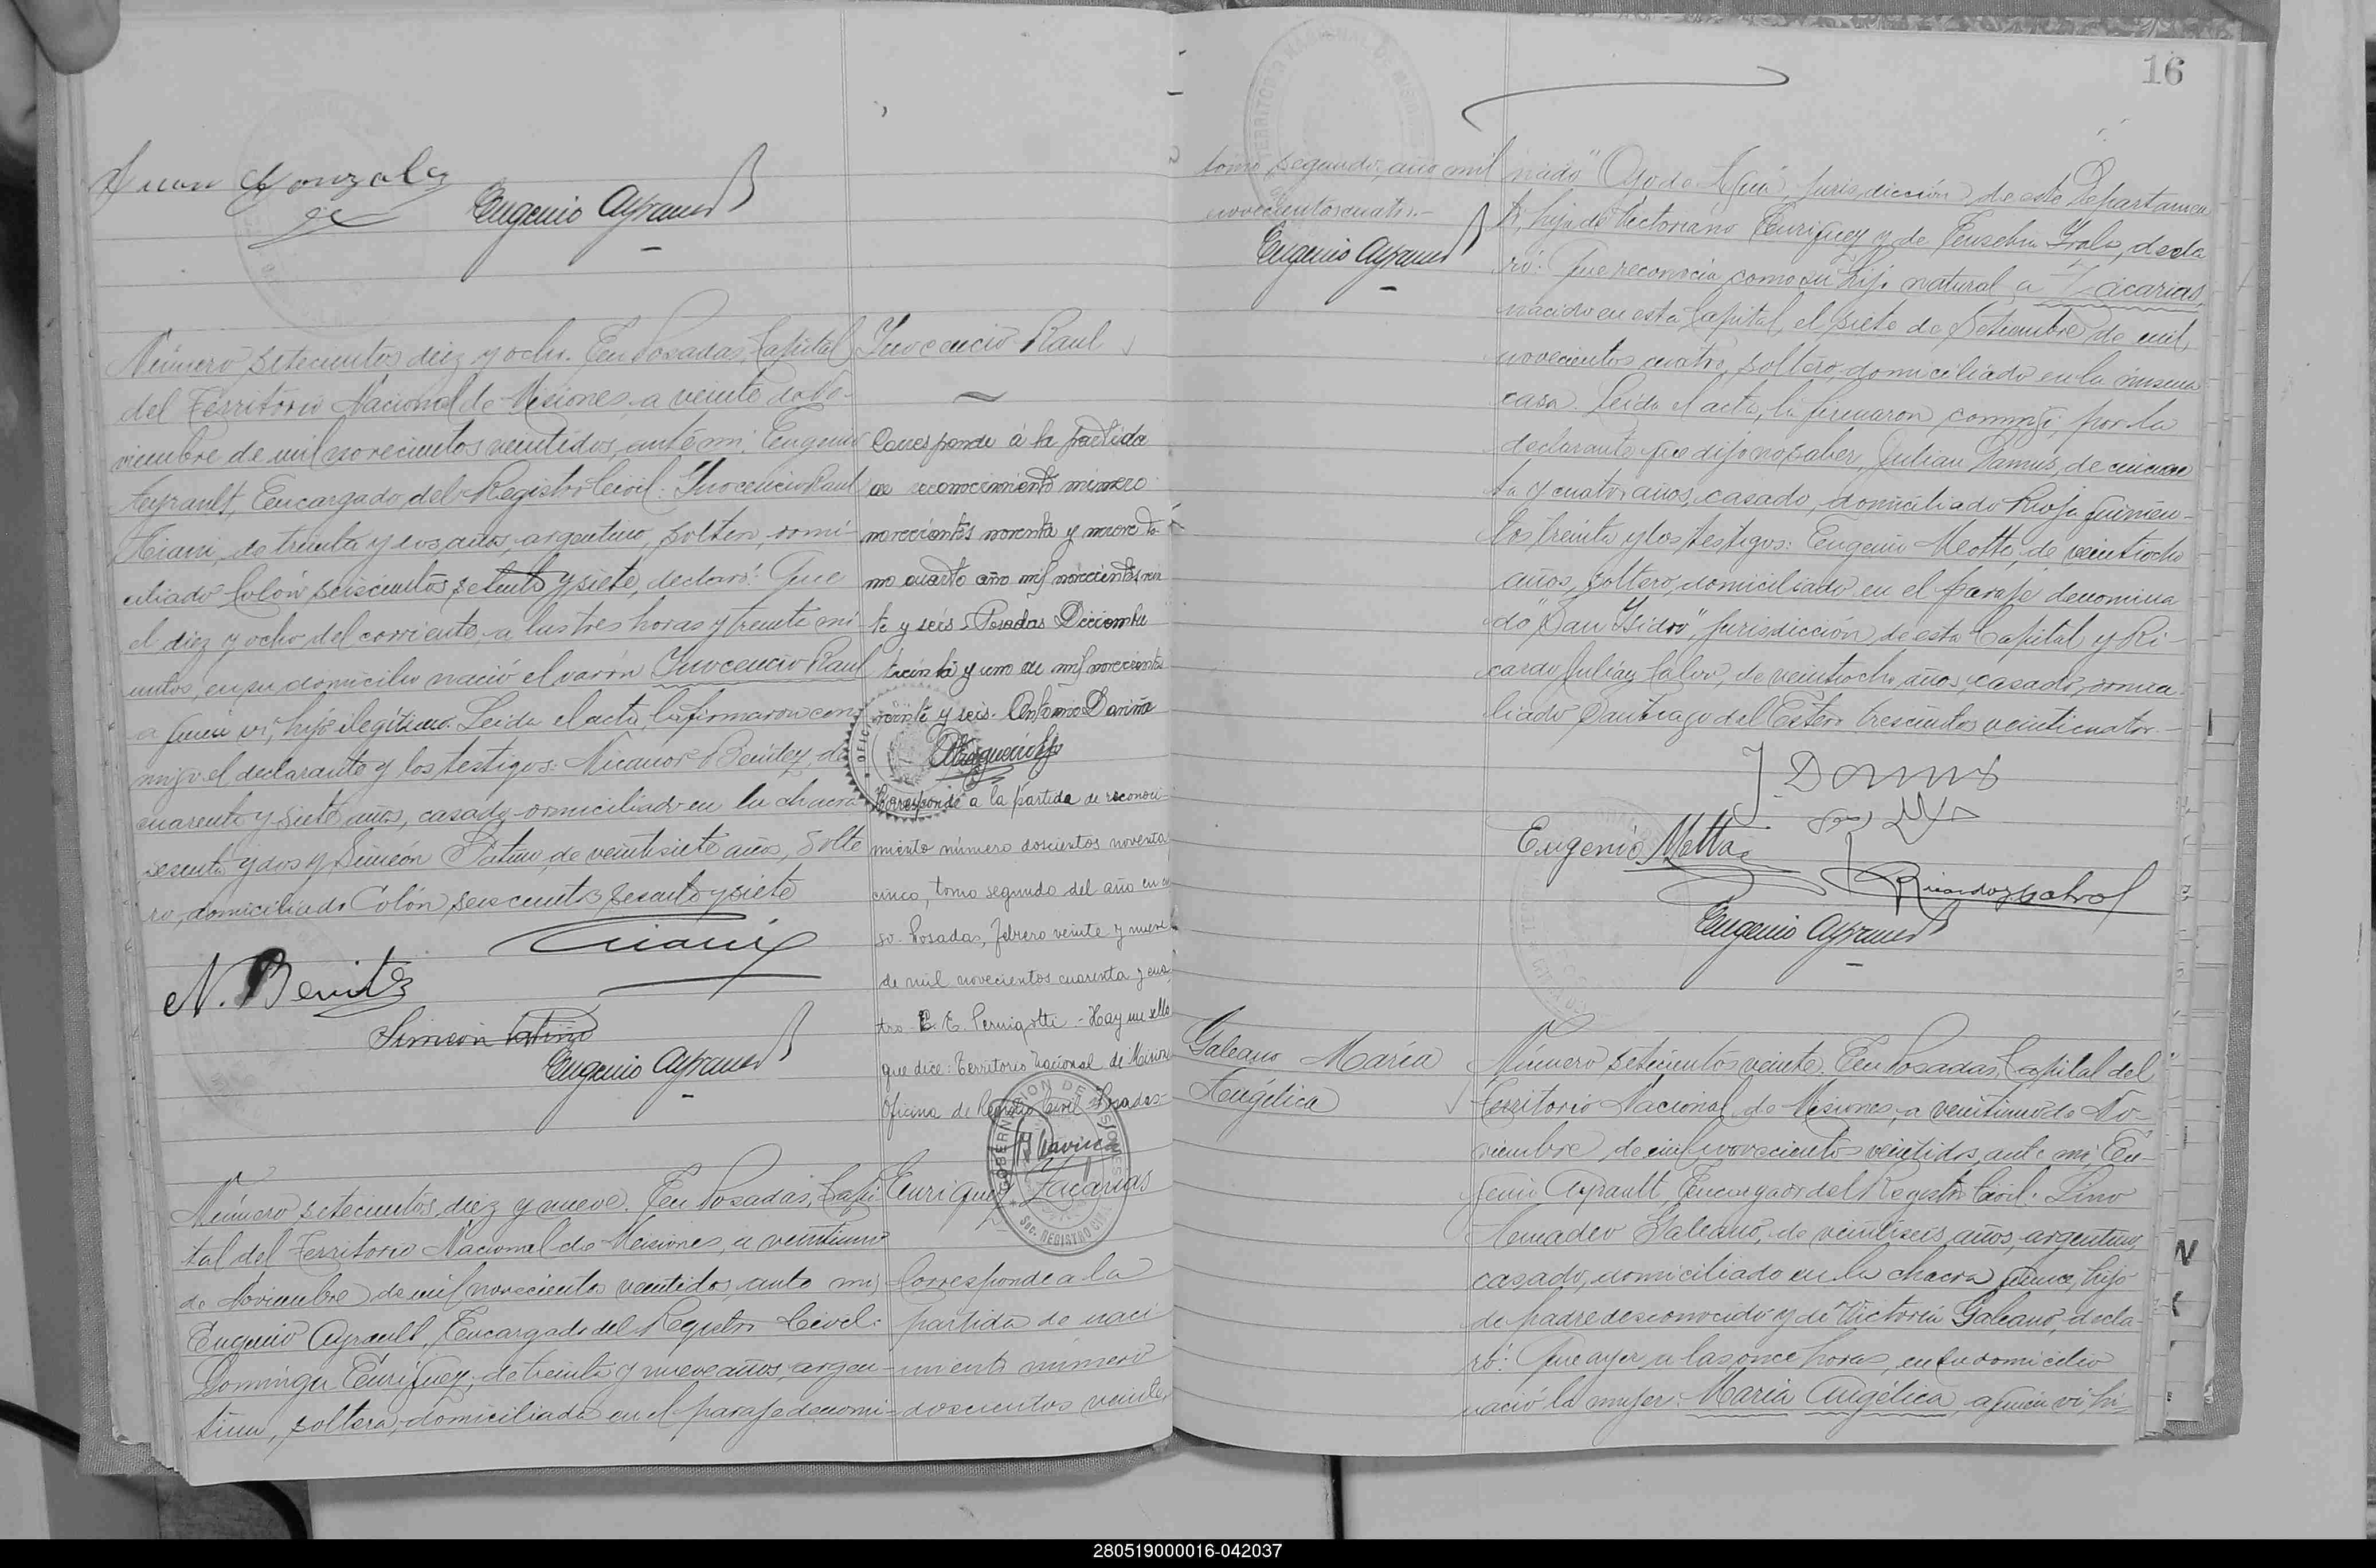 Juan Gonzalez
Eugenio Ayrault
Número setecientos diez y ocho. En Posadas, Capital
del Territorio Nacional de Misiones, a veinte de No-
viembre de mil novecientos veintidos, ante mi, Eugenio
Ayrault, Encargado del Registro Civil: Inocencio Raul
de treinta y dos años, argentino, soltero, domi-
ciliado Colón seiscientos y siete, declaró: Que
el diez y ocho del corriente, a las tres horas y treinta mi-
nutos, en su domicilio nació el varón Inocencio Raul
a quien vi, hijo ilegítimo. Leida el acta, la firmaron con-
migo el declarante y los testigos: Nicanor Benítez, de
cuarenta y siete años, casado, domiciliado en la chacra
sesenta y dos y Simeón Patiño, de veintisiete años, solte
ro, domiciliado Colón seiscientos sesenta y siete
N. Benitez
Simeón Patiño
Eugenio Ayrault
Inocencio Raul
Corresponde á la partida
de reconocimiento número
novecientos noventa y nueve to-
mo cuarto año mil novecientos vein
te y seis. Posadas Diciembre
treinta y uno de mil novecientos
veinte y seis. Antonio
Corresponde a la partida de reconoci-
miento número doscientos noventa
cinco, tomo segundo del año en cur
so. Posadas, febrero veinte y nueve
de mil novecientos cuarenta y cua
tro. E. E. Pernigotti. - Hay un sello
que dice: Territorio Nacional de Misiones
Oficina de Registro Civil - Posadas-
GOBERNACION DE MISIONES
SEC. REGISTRO CIVIL
Número setecientos diez y nueve. En Posadas, Capi
tal del Territorio Nacional de Misiones, a veintiuno
de Noviembre de mil novecientos veintidos, ante mi,
Eugenio Ayrault, Encargado del Registro Civil:
Dominga Enriquez, de treinta y nueve años, argen-
tina, soltera, domiciliada en el paraje denomi-
Enriquez Zacarias
Corresponde a la
partida de naci
miento número
doscientos veinte,
16
tomo segundo, año mil
novecientos cuatro.-
Eugenio Ayrault
nado "Ojo de Agua", jurisdicción de este Departamen
to, hija de Victoriano Enriquez y de Eusebia Irala, decla
ró: Que reconocía como su hijo natural a Zacarias,
nacido en esta Capital, el siete de Setiembre de mil
novecientos cuatro, soltero, domiciliado en la misma
casa. Leida el acta, la firmaron conmigo, por la
declarante que dijo no saber, Julian Damus, de cincuen
ta y cuatro años, casado, domiciliado Rioja quinien-
tos treinta y los testigos: Eugenio Motta, de veintiocho
años, soltero, domiciliado en el paraje denomina
do "San Isidro", jurisdicción de esta Capital y Ri-
cardo Julián Calvo, de veintiocho años, casado, domici-
liado Santiago del Estero trescientos veinticuatro.-
J. Damus
Eugenio Motta
Eugenio Ayrault
Galeano María
Angélica
Número setecientos veinte. En Posadas, Capital del
Territorio Nacional de Misiones, a veintiuno de No-
viembre de mil novecientos veintidos, ante mi, Eu-
genio Ayrault, Encargado del Registro Civil: Lino
Amadeo Galeano, de veintiseis años, argentino,
casado, domiciliado en la chacra quince, hijo
de padre desconocido y de Victoria Galeano, decla-
ró: Que ayer a las once horas, en su domicilio
nació la mujer: María Angélica, a quien vi, hi-
280519000016-042037